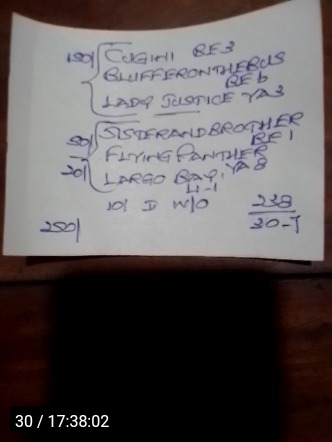 150/ CUGINI RE3
BLUFFERONTHEBUS
RE6
LADY JUSTICE YA3
50/ SISTERANDBROTHER
RE1
FLYING PANTHER
20/ LARGO BAY, YA8
4-1
10/ D W/O
238
250/
30-7
30 / 17:38:02